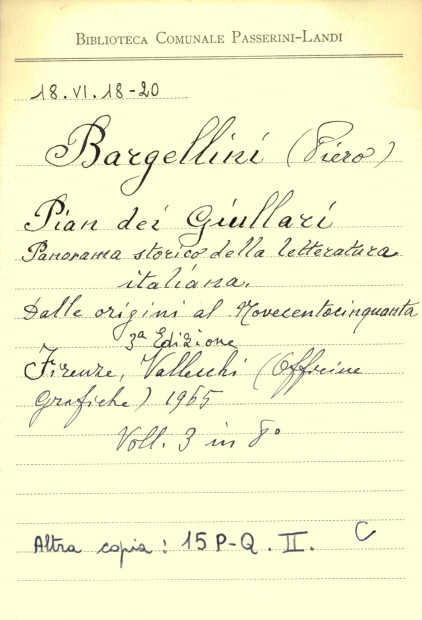 BIBLIOTECA COMUNALE PASSERINI-LANDI
18.VI.18-20
Bargellini (Piero)
Pian dei Giullari
Panorama storico della letteratura
italiana.
Dalle origini al Novecentocinquanta
3ª Edizione
Firenze, Vallecchi (Officine
Grafiche) 1965
Voll. 3 in 8º
Altra copia: 15 P-Q. II. C